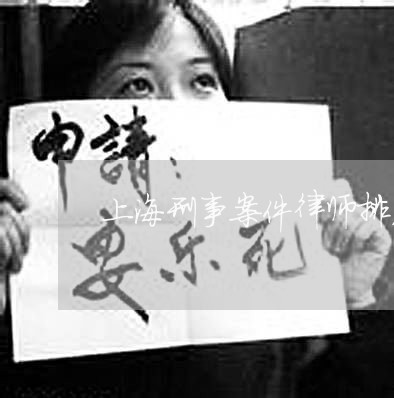 申請：
上海刑事案件律师排
安乐死